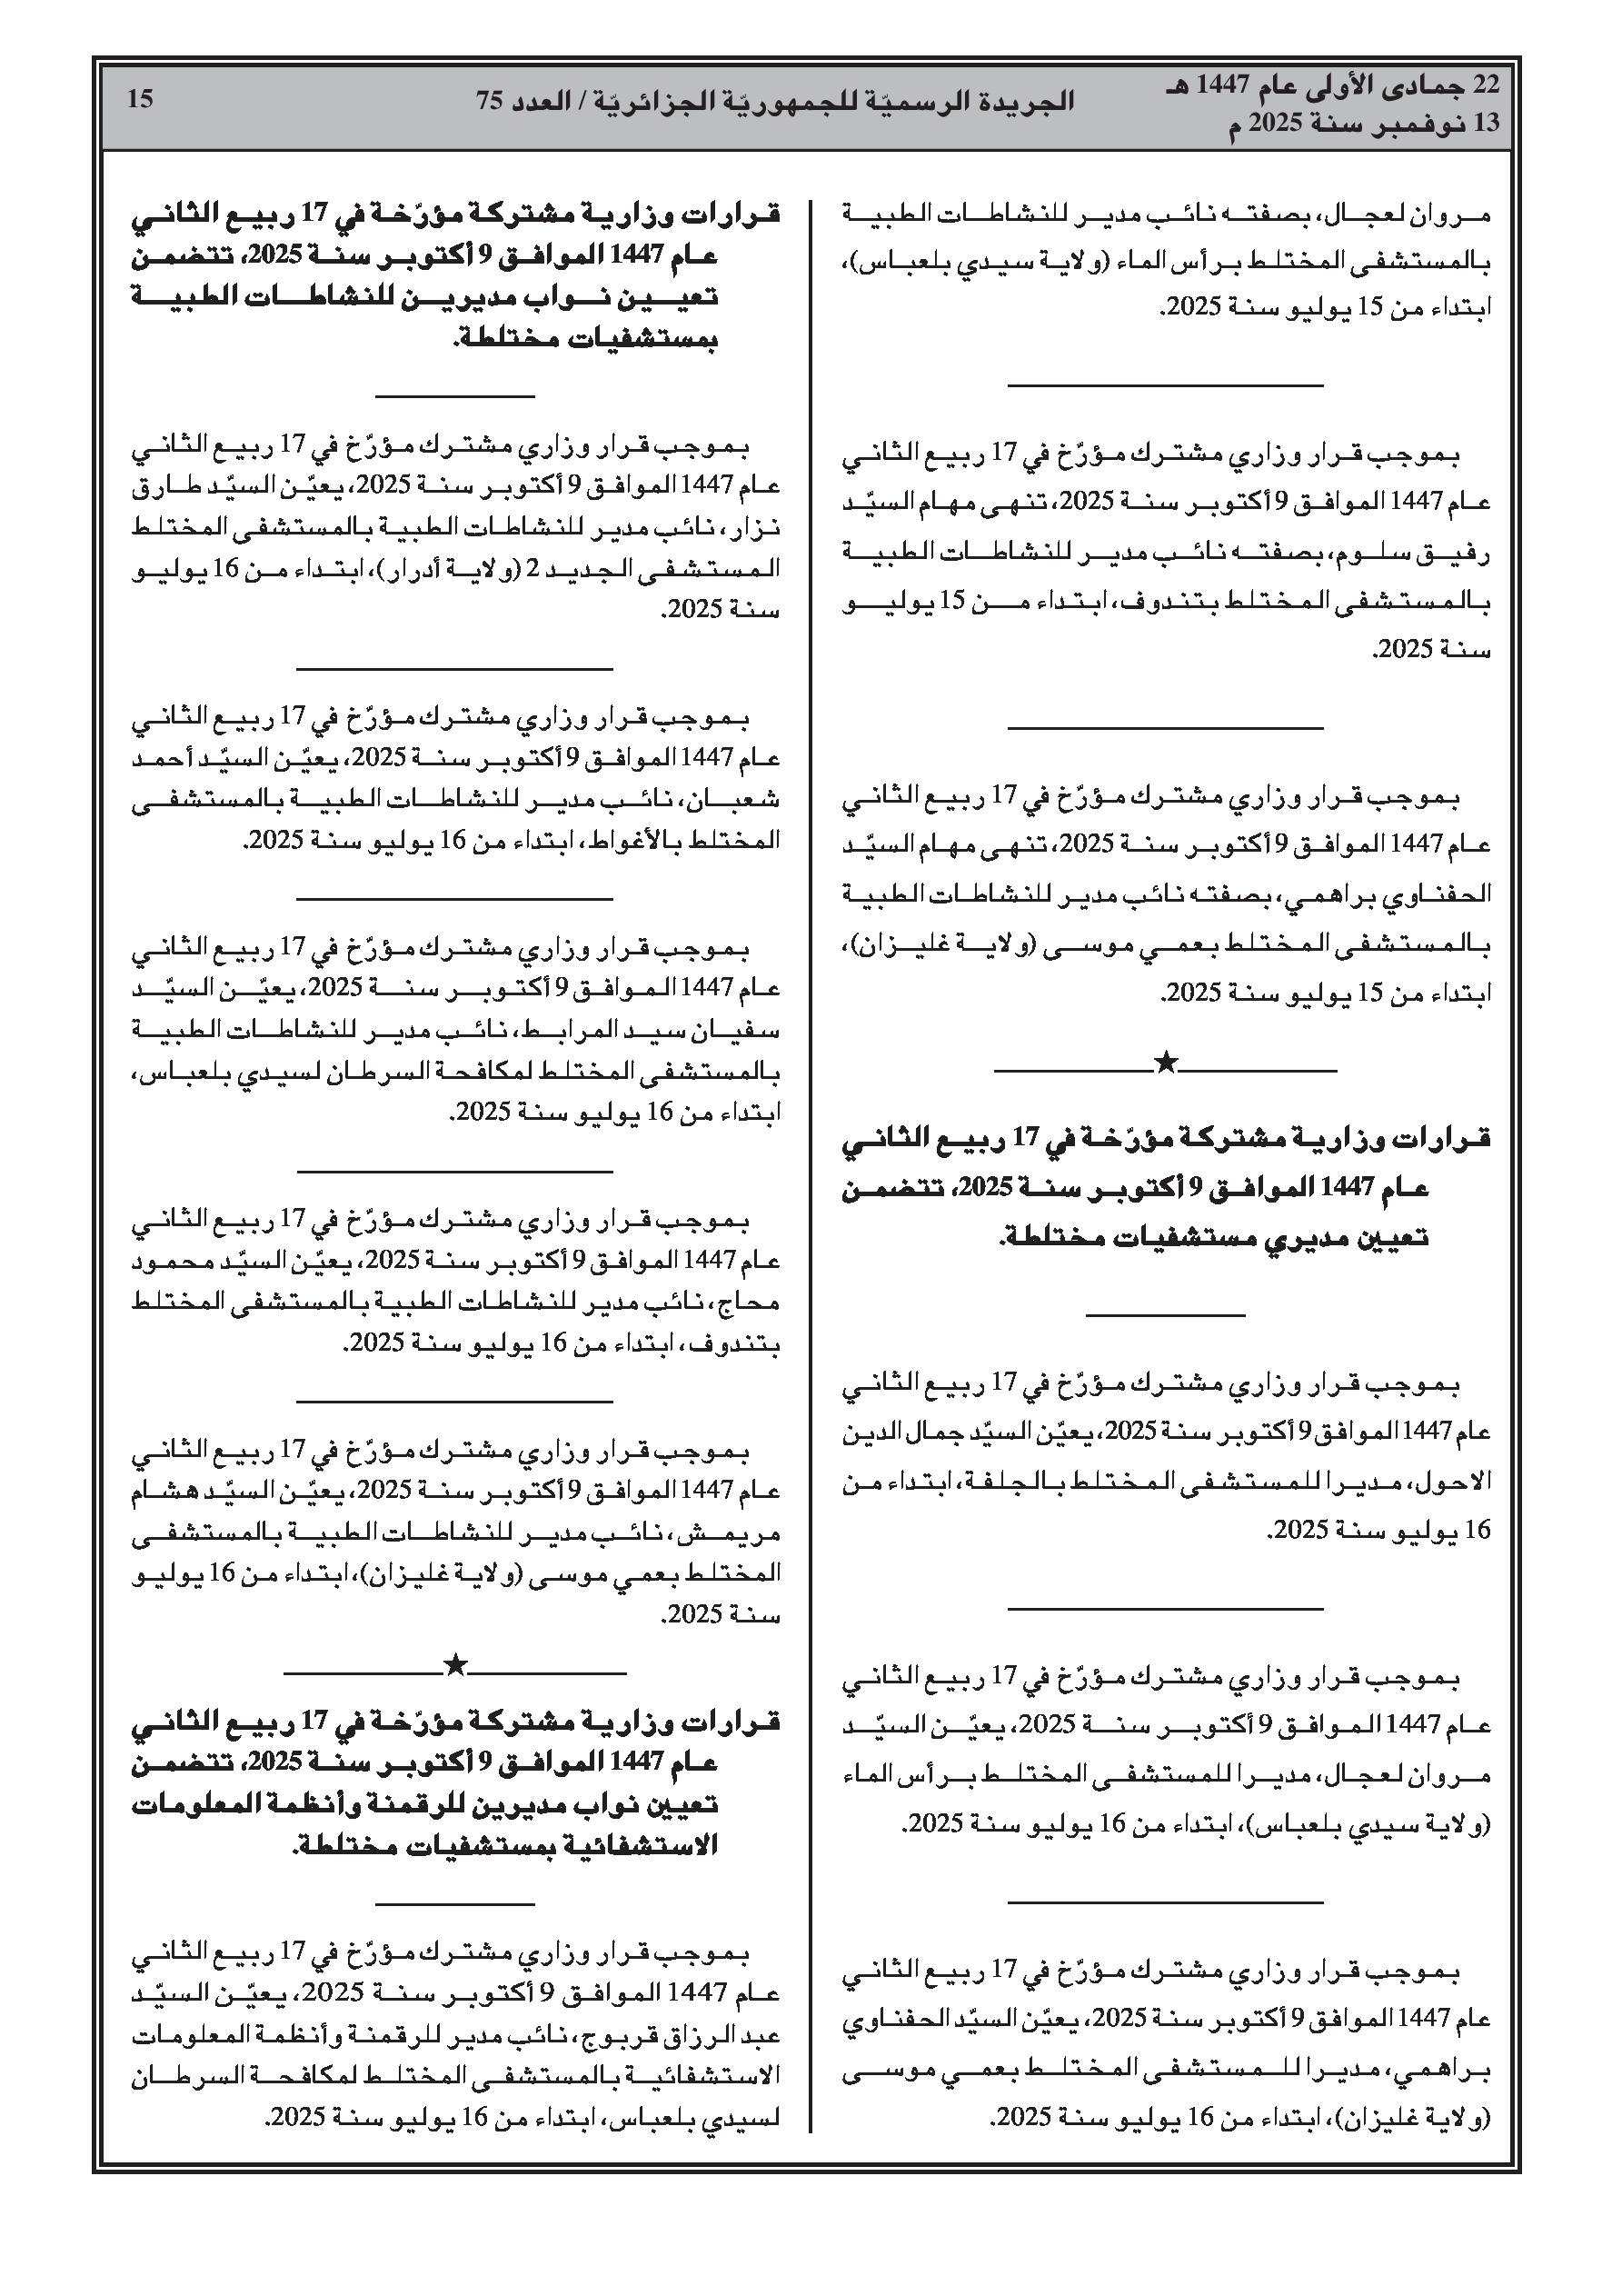 22 جمادى الأولى عام 1447 هـ
13 نوفمبر سنة 2025 م
الجريدة الرسميّة للجمهوريّة الجزائريّة / العدد 75
15
مروان لعجال، بصفته نائب مدير للنشاطات الطبية
بالمستشفى المختلط برأس الماء (ولاية سيدي بلعباس)،
ابتداء من 15 يوليو سنة 2025.
بموجب قرار وزاري مشترك مؤرّخ في 17 ربيع الثاني
عام 1447 الموافق 9 أكتوبر سنة 2025، تنهى مهام السيّد
رفيق سلوم، بصفته نائب مدير للنشاطات الطبية
بالمستشفى المختلط بتندوف، ابتداء من 15 يوليو
سنة 2025.
بموجب قرار وزاري مشترك مؤرّخ في 17 ربيع الثاني
عام 1447 الموافق 9 أكتوبر سنة 2025، تنهى مهام السيّد
الحفناوي براهمي، بصفته نائب مدير للنشاطات الطبية
بالمستشفى المختلط بعمي موسى (ولاية غليزان)،
ابتداء من 15 يوليو سنة 2025.
قرارات وزارية مشتركة مؤرّخة في 17 ربيع الثاني
عام 1447 الموافق 9 أكتوبر سنة 2025، تتضمن
تعيين مديري مستشفيات مختلطة.
بموجب قرار وزاري مشترك مؤرّخ في 17 ربيع الثاني
عام 1447 الموافق 9 أكتوبر سنة 2025، يعيّن السيّد جمال الدين
الاحول، مديرا للمستشفى المختلط بالجلفة، ابتداء من
16 يوليو سنة 2025.
بموجب قرار وزاري مشترك مؤرّخ في 17 ربيع الثاني
عام 1447 الموافق 9 أكتوبر سنة 2025، يعيّن السيّد
مروان لعجال، مديرا للمستشفى المختلط برأس الماء
(ولاية سيدي بلعباس)، ابتداء من 16 يوليو سنة 2025.
بموجب قرار وزاري مشترك مؤرّخ في 17 ربيع الثاني
عام 1447 الموافق 9 أكتوبر سنة 2025، يعيّن السيّد الحفناوي
براهمي، مديرا للمستشفى المختلط بعمي موسى
(ولاية غليزان)، ابتداء من 16 يوليو سنة 2025.
قرارات وزارية مشتركة مؤرّخة في 17 ربيع الثاني
عام 1447 الموافق 9 أكتوبر سنة 2025، تتضمن
تعيين نواب مديرين للنشاطات الطبية
بمستشفيات مختلطة.
بموجب قرار وزاري مشترك مؤرّخ في 17 ربيع الثاني
عام 1447 الموافق 9 أكتوبر سنة 2025، يعيّن السيّد طارق
نزار، نائب مدير للنشاطات الطبية بالمستشفى المختلط
المستشفى الجديد 2 (ولاية أدرار)، ابتداء من 16 يوليو
سنة 2025.
بموجب قرار وزاري مشترك مؤرّخ في 17 ربيع الثاني
عام 1447 الموافق 9 أكتوبر سنة 2025، يعيّن السيّد أحمد
شعبان، نائب مدير للنشاطات الطبية بالمستشفى
المختلط بالأغواط، ابتداء من 16 يوليو سنة 2025.
بموجب قرار وزاري مشترك مؤرّخ في 17 ربيع الثاني
عام 1447 الموافق 9 أكتوبر سنة 2025، يعيّن السيّد
سفيان سيد المرابط، نائب مدير للنشاطات الطبية
بالمستشفى المختلط لمكافحة السرطان لسيدي بلعباس،
ابتداء من 16 يوليو سنة 2025.
بموجب قرار وزاري مشترك مؤرّخ في 17 ربيع الثاني
عام 1447 الموافق 9 أكتوبر سنة 2025، يعيّن السيّد محمود
محاج، نائب مدير للنشاطات الطبية بالمستشفى المختلط
بتندوف، ابتداء من 16 يوليو سنة 2025.
بموجب قرار وزاري مشترك مؤرّخ في 17 ربيع الثاني
عام 1447 الموافق 9 أكتوبر سنة 2025، يعيّن السيّد هشام
مريمش، نائب مدير للنشاطات الطبية بالمستشفى
المختلط بعمي موسى (ولاية غليزان)، ابتداء من 16 يوليو
سنة 2025.
قرارات وزارية مشتركة مؤرّخة في 17 ربيع الثاني
عام 1447 الموافق 9 أكتوبر سنة 2025، تتضمن
تعيين نواب مديرين للرقمنة وأنظمة المعلومات
الاستشفائية بمستشفيات مختلطة.
بموجب قرار وزاري مشترك مؤرّخ في 17 ربيع الثاني
عام 1447 الموافق 9 أكتوبر سنة 2025، يعيّن السيّد
عبد الرزاق قربوج، نائب مدير للرقمنة وأنظمة المعلومات
الاستشفائية بالمستشفى المختلط لمكافحة السرطان
لسيدي بلعباس، ابتداء من 16 يوليو سنة 2025.